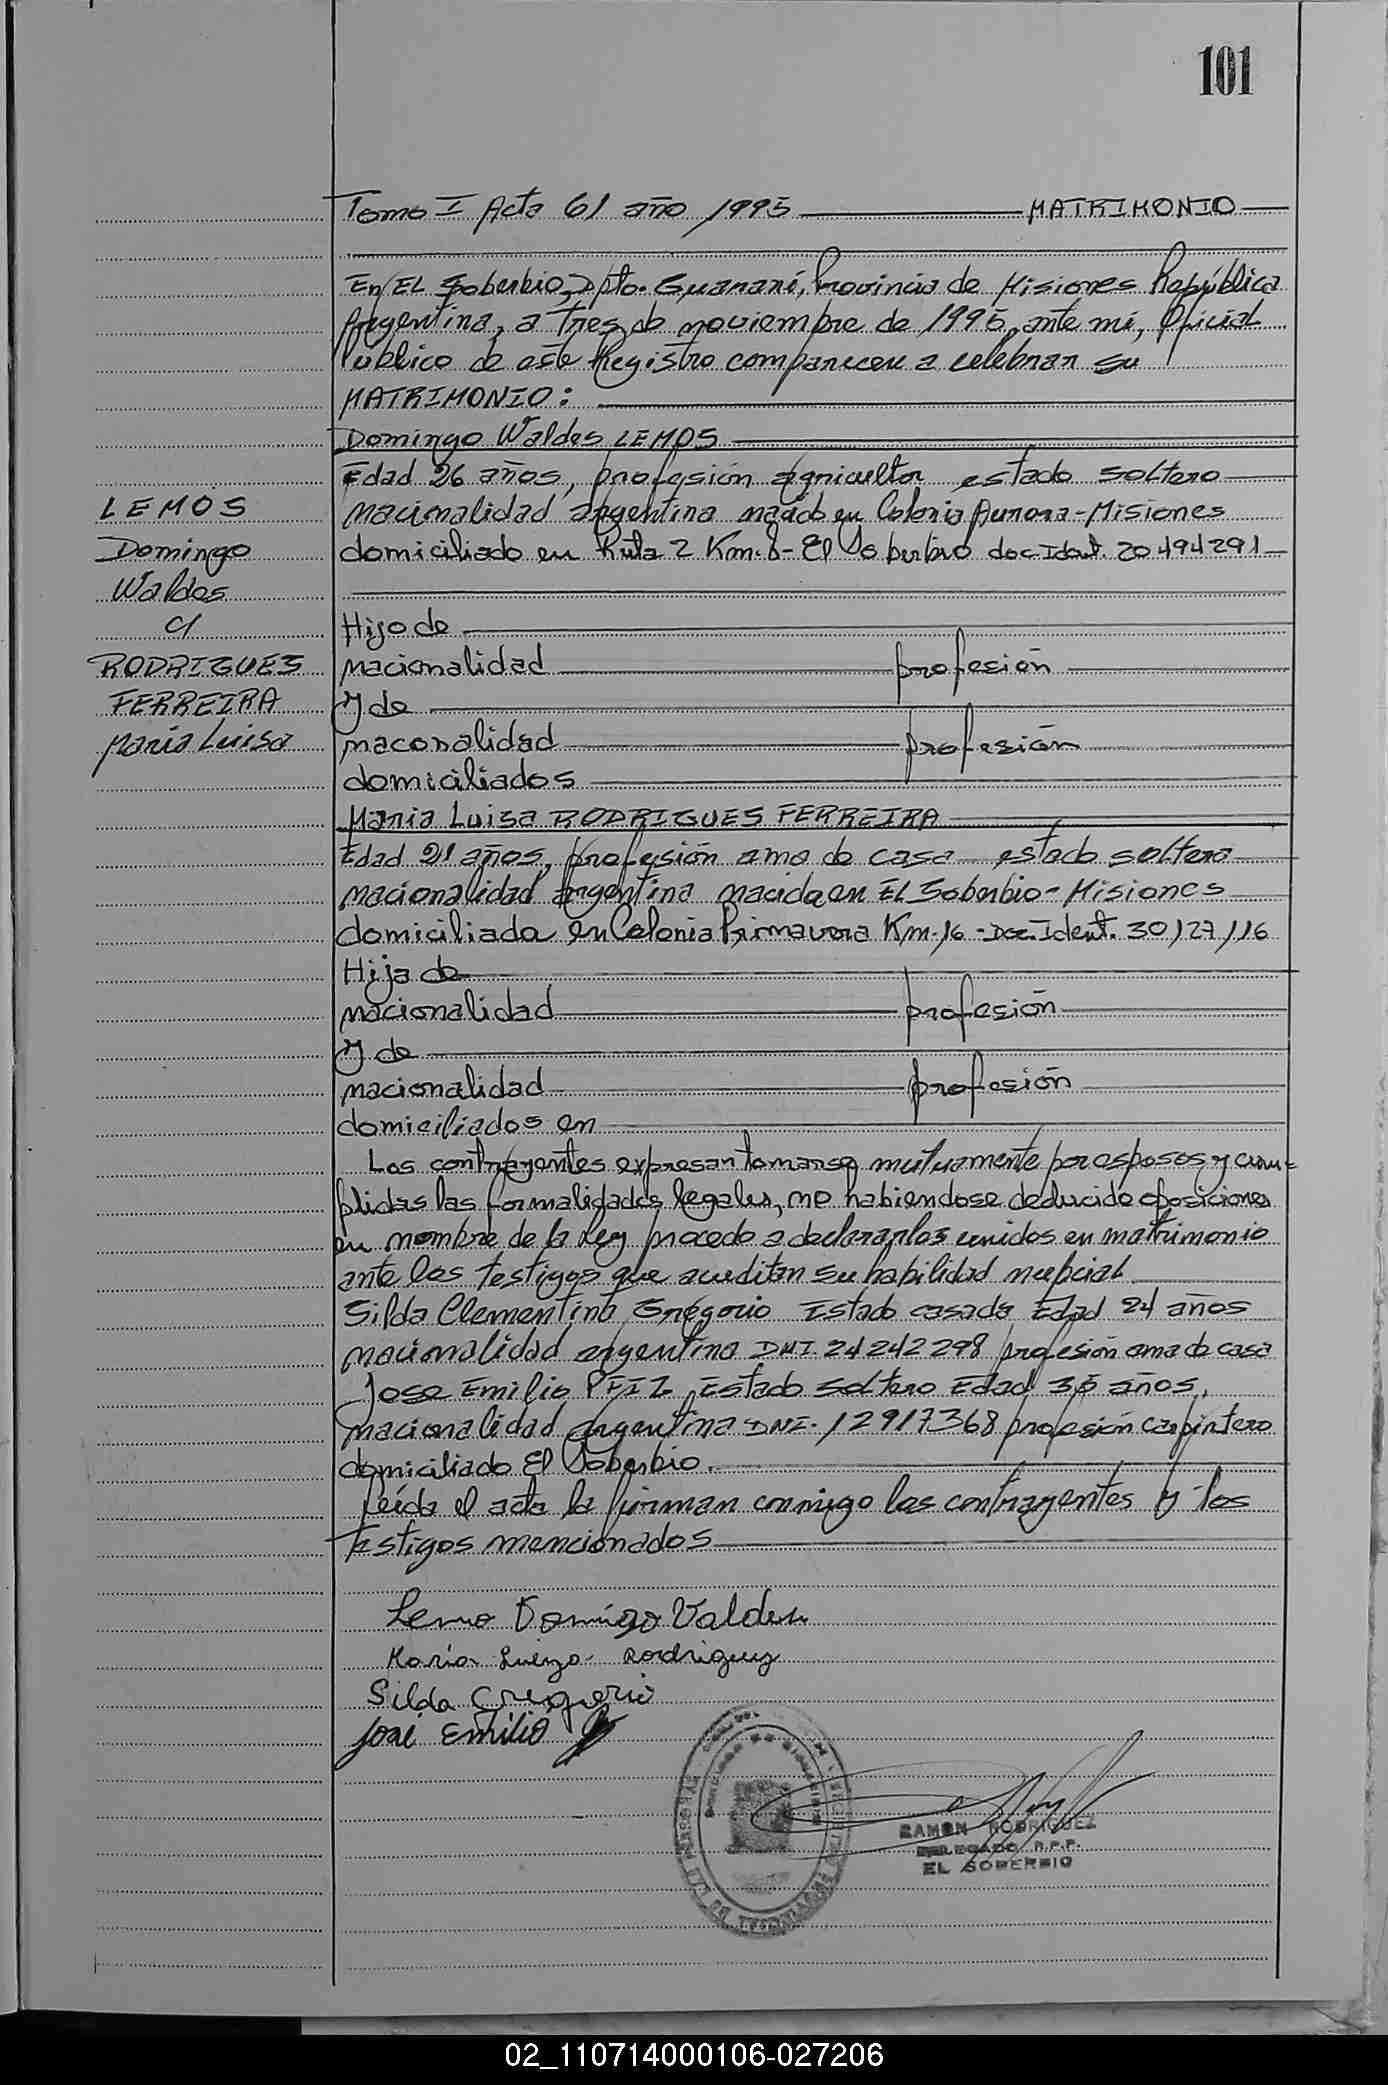 101
Tomo I Acta 61 año 1995 MATRIMONIO
En EL Soberbio, Dpto. Guaraní, Provincia de Misiones República
Argentina, a tres de noviembre de 1995, ante mí, Oficial
Público de este Registro comparecen a celebrar su
MATRIMONIO:
Domingo Waldes LEMOS
Edad 26 años, profesión agricultor estado soltero
LEMOS
nacionalidad argentina nacido en Colonia Aurora-Misiones
Domingo
domiciliado en Ruta 2 Km. 8- El Soberbio doc Ident. 20494291
Waldes
c/
Hijo de
RODRIGUES
nacionalidad profesión
FERREIRA
y de
Maria Luisa
naconalidad profesión
domiciliados
Maria Luisa RODRIGUES FERREIRA
Edad 21 años, profesión ama de casa estado soltera
nacionalidad argentina nacida en EL Soberbio-Misiones
domiciliada en Colonia Primavera Km-16-Doc. Ident. 30/27/16
Hija de
nacionalidad profesión
y de
nacionalidad profesión
domiciliados en
Los contrayentes expresan tomarse mutuamente por esposos y cum=
plidas las formalidades legales, no habiendose deducido oposiciones
en nombre de la Ley procedo a declararlos unidos en matrimonio
ante los testigos que acreditan su habilidad nupcial
Silda Clementina Gregorio Estado casada Edad 24 años
nacionalidad argentina DNI. 24242298 profesión ama de casa
Jose Emilio Estado soltero Edad 35 años,
nacionalidad argentina DNI. 12917368 profesión carpintero
domiciliado El Soberbio.
Leída el acta la firman conmigo los contrayentes y los
testigos mencionados
Lemo Domigo Valdes
Maria Luiza Rodriguez
Silda Gregorio
José Emilio
RAMON RODRIGUEZ
DELEGADO R.P.P.
EL SOBERBIO
02_110714000106-027206